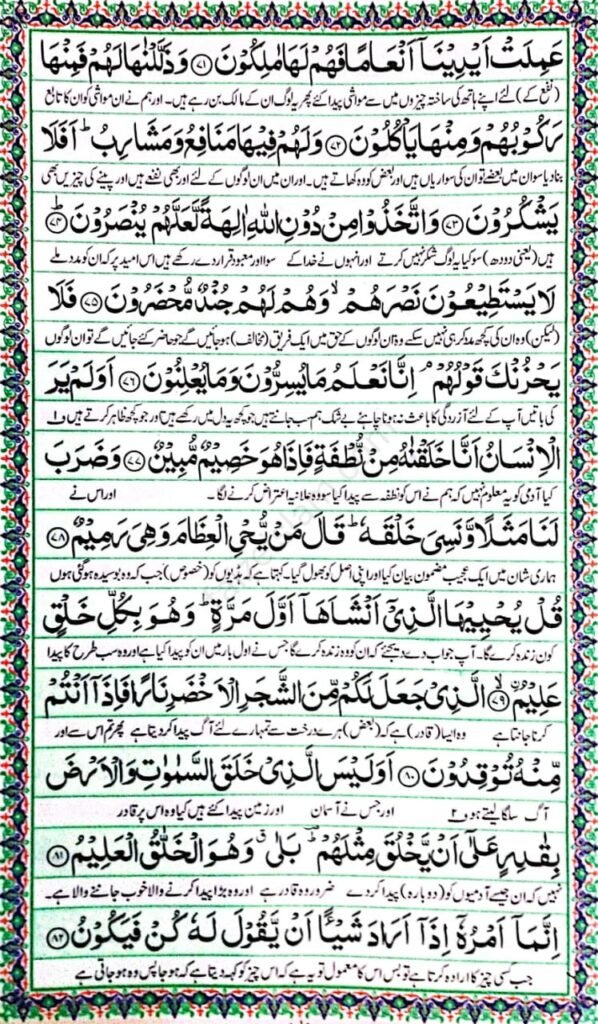 عَمِلَتْ اَيْدِيْنَاۤ اَنْعَامًا فَهُمْ لَهَا مٰلِكُوْنَ ﴿۷۱﴾ وَذَلَّلْنٰهَا لَهُمْ فَمِنْهَا
(نفع کے) لئے اپنے ہاتھ کی ساختہ چیزوں میں سے مواشی پیدا کئے پھر یہ لوگ ان کے مالک بن رہے ہیں۔ اور ہم نے ان مواشی کو ان کا تابع
رَكُوْبُهُمْ وَمِنْهَا يَاْكُلُوْنَ ﴿۷۲﴾ وَلَهُمْ فِيْهَا مَنَافِعُ وَمَشَارِبُ ؕ اَفَلَا
بنا دیا سو ان میں بعضے تو ان کی سواریاں ہیں اور بعض کو وہ کھاتے ہیں۔ اور ان میں ان لوگوں کے لئے اور بھی نفعے ہیں اور پینے کی چیزیں بھی
يَشْكُرُوْنَ ﴿۷۳﴾ وَاتَّخَذُوْا مِنْ دُوْنِ اللّٰهِ اٰلِهَةً لَّعَلَّهُمْ يُنْصَرُوْنَ ﴿۷۴﴾ؕ
ہیں (یعنی دودھ) سو کیا یہ لوگ شکر نہیں کرتے اور انہوں نے خدا کے سوا اور معبود قرار دے رکھے ہیں اس امید پر کہ ان کو مدد ملے
لَا يَسْتَطِيْعُوْنَ نَصْرَهُمْ ۙ وَهُمْ لَهُمْ جُنْدٌ مُّحْضَرُوْنَ ﴿۷۵﴾ فَلَا
(لیکن) وہ ان کی کچھ مدد کر ہی نہیں سکتے وہ ان لوگوں کے حق میں ایک فریق (مخالف) ہو جائیں گے جو حاضر کئے جائیں گے تو ان لوگوں
يَحْزُنْكَ قَوْلُهُمْ ۘ اِنَّا نَعْلَمُ مَا يُسِرُّوْنَ وَمَا يُعْلِنُوْنَ ﴿۷۶﴾ اَوَلَمْ يَرَ
کی باتیں آپ کے لئے آزردگی کا باعث نہ ہونا چاہئے بے شک ہم سب جانتے ہیں جو کچھ یہ دل میں رکھتے ہیں اور جو کچھ ظاہر کرتے ہیں ف۱
الْاِنْسَانُ اَنَّا خَلَقْنٰهُ مِنْ نُّطْفَةٍ فَاِذَا هُوَ خَصِيْمٌ مُّبِيْنٌ ﴿۷۷﴾ وَضَرَبَ
کیا آدمی کو یہ معلوم نہیں کہ ہم نے اس کو نطفہ سے پیدا کیا سو وہ علانیہ اعتراض کرنے لگا۔ اور اس نے
لَنَا مَثَلًا وَّنَسِيَ خَلْقَهٗ ؕ قَالَ مَنْ يُّحْيِ الْعِظَامَ وَهِيَ رَمِيْمٌ ﴿۷۸﴾
ہماری شان میں ایک عجیب مضمون بیان کیا اور اپنی اصل کو بھول گیا۔ کہتا ہے کہ ہڈیوں کو (خصوص) جب کہ وہ بوسیدہ ہو گئی ہوں
قُلْ يُحْيِيْهَا الَّذِيْۤ اَنْشَاَهَاۤ اَوَّلَ مَرَّةٍ ؕ وَهُوَ بِكُلِّ خَلْقٍ
کون زندہ کرے گا۔ آپ جواب دے دیجئے کہ ان کو وہ زندہ کرے گا جس نے اول بار میں ان کو پیدا کیا ہے اور وہ سب طرح کا پیدا
عَلِيْمٌ ﴿۷۹﴾ۙ الَّذِيْ جَعَلَ لَكُمْ مِّنَ الشَّجَرِ الْاَخْضَرِ نَارًا فَاِذَاۤ اَنْتُمْ
کرنا جانتا ہے وہ ایسا (قادر) ہے کہ (بعض) ہرے درخت سے تمہارے لئے آگ پیدا کر دیتا ہے پھر تم اس سے اور
مِّنْهُ تُوْقِدُوْنَ ﴿۸۰﴾ اَوَلَيْسَ الَّذِيْ خَلَقَ السَّمٰوٰتِ وَالْاَرْضَ
آگ سلگا لیتے ہو ف۲ اور جس نے آسمان اور زمین پیدا کئے ہیں کیا وہ اس پر قادر
بِقٰدِرٍ عَلٰۤى اَنْ يَّخْلُقَ مِثْلَهُمْ ؕ بَلٰى ۗ وَهُوَ الْخَلّٰقُ الْعَلِيْمُ ﴿۸۱﴾
نہیں کہ ان جیسے آدمیوں کو (دوبارہ) پیدا کر دے ضرور وہ قادر ہے اور وہ بڑا پیدا کرنے والا خوب جاننے والا ہے۔
اِنَّمَاۤ اَمْرُهٗۤ اِذَاۤ اَرَادَ شَيْـًٔا اَنْ يَّقُوْلَ لَهٗ كُنْ فَيَكُوْنُ ﴿۸۲﴾
جب کسی چیز کا ارادہ کرتا ہے تو بس اس کا معمول تو یہ ہے کہ اس چیز کو کہہ دیتا ہے کہ ہو جا پس وہ ہو جاتی ہے